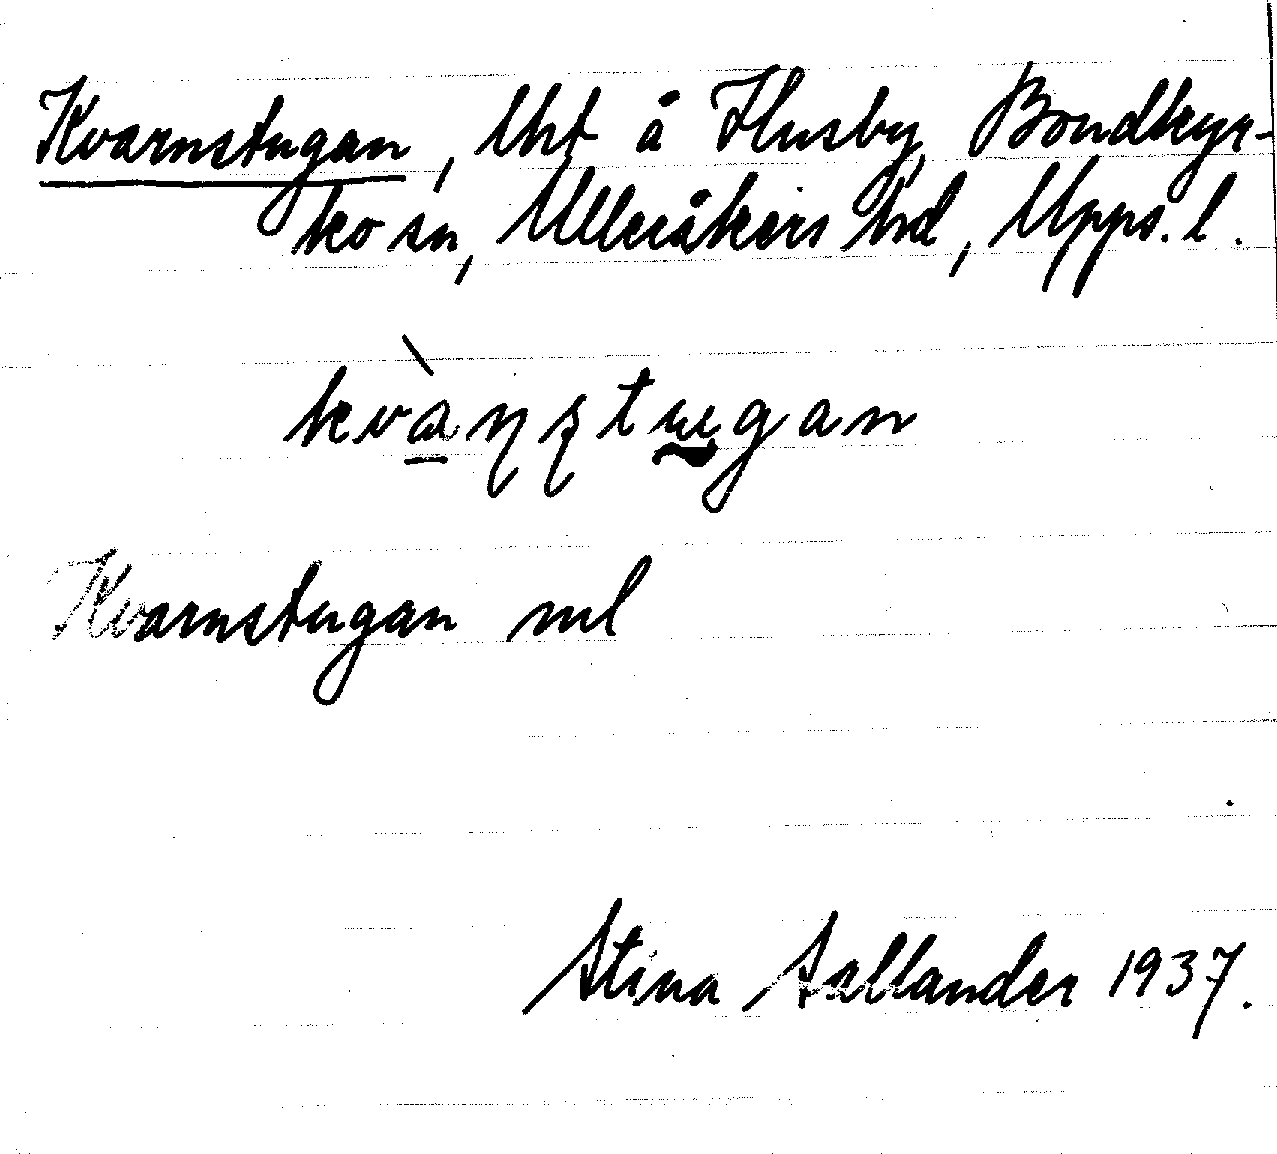 Kvarnstugan, lht å Husby, Bondkyr-
ko sn, Ulleråkers hd, Upps. l.
kvàṇṣtugan
Kvarnstugan ml
Stina Sallander 1937.